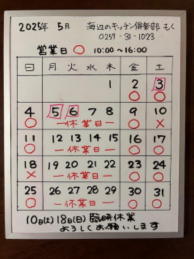 2025年 5月 海辺のキッチン倶楽部 もく
0257-31-1023
営業日 ○ 10:00〜16:00
日 月 火 水 木 金 土
1 2 3
4 5 6 7 8 9 10
休業日
11 12 13 14 15 16 17
休業日
18 19 20 21 22 23 24
休業日
25 26 27 28 29 30 31
休業日
10日(土)18日(日)臨時休業
よろしくお願いします